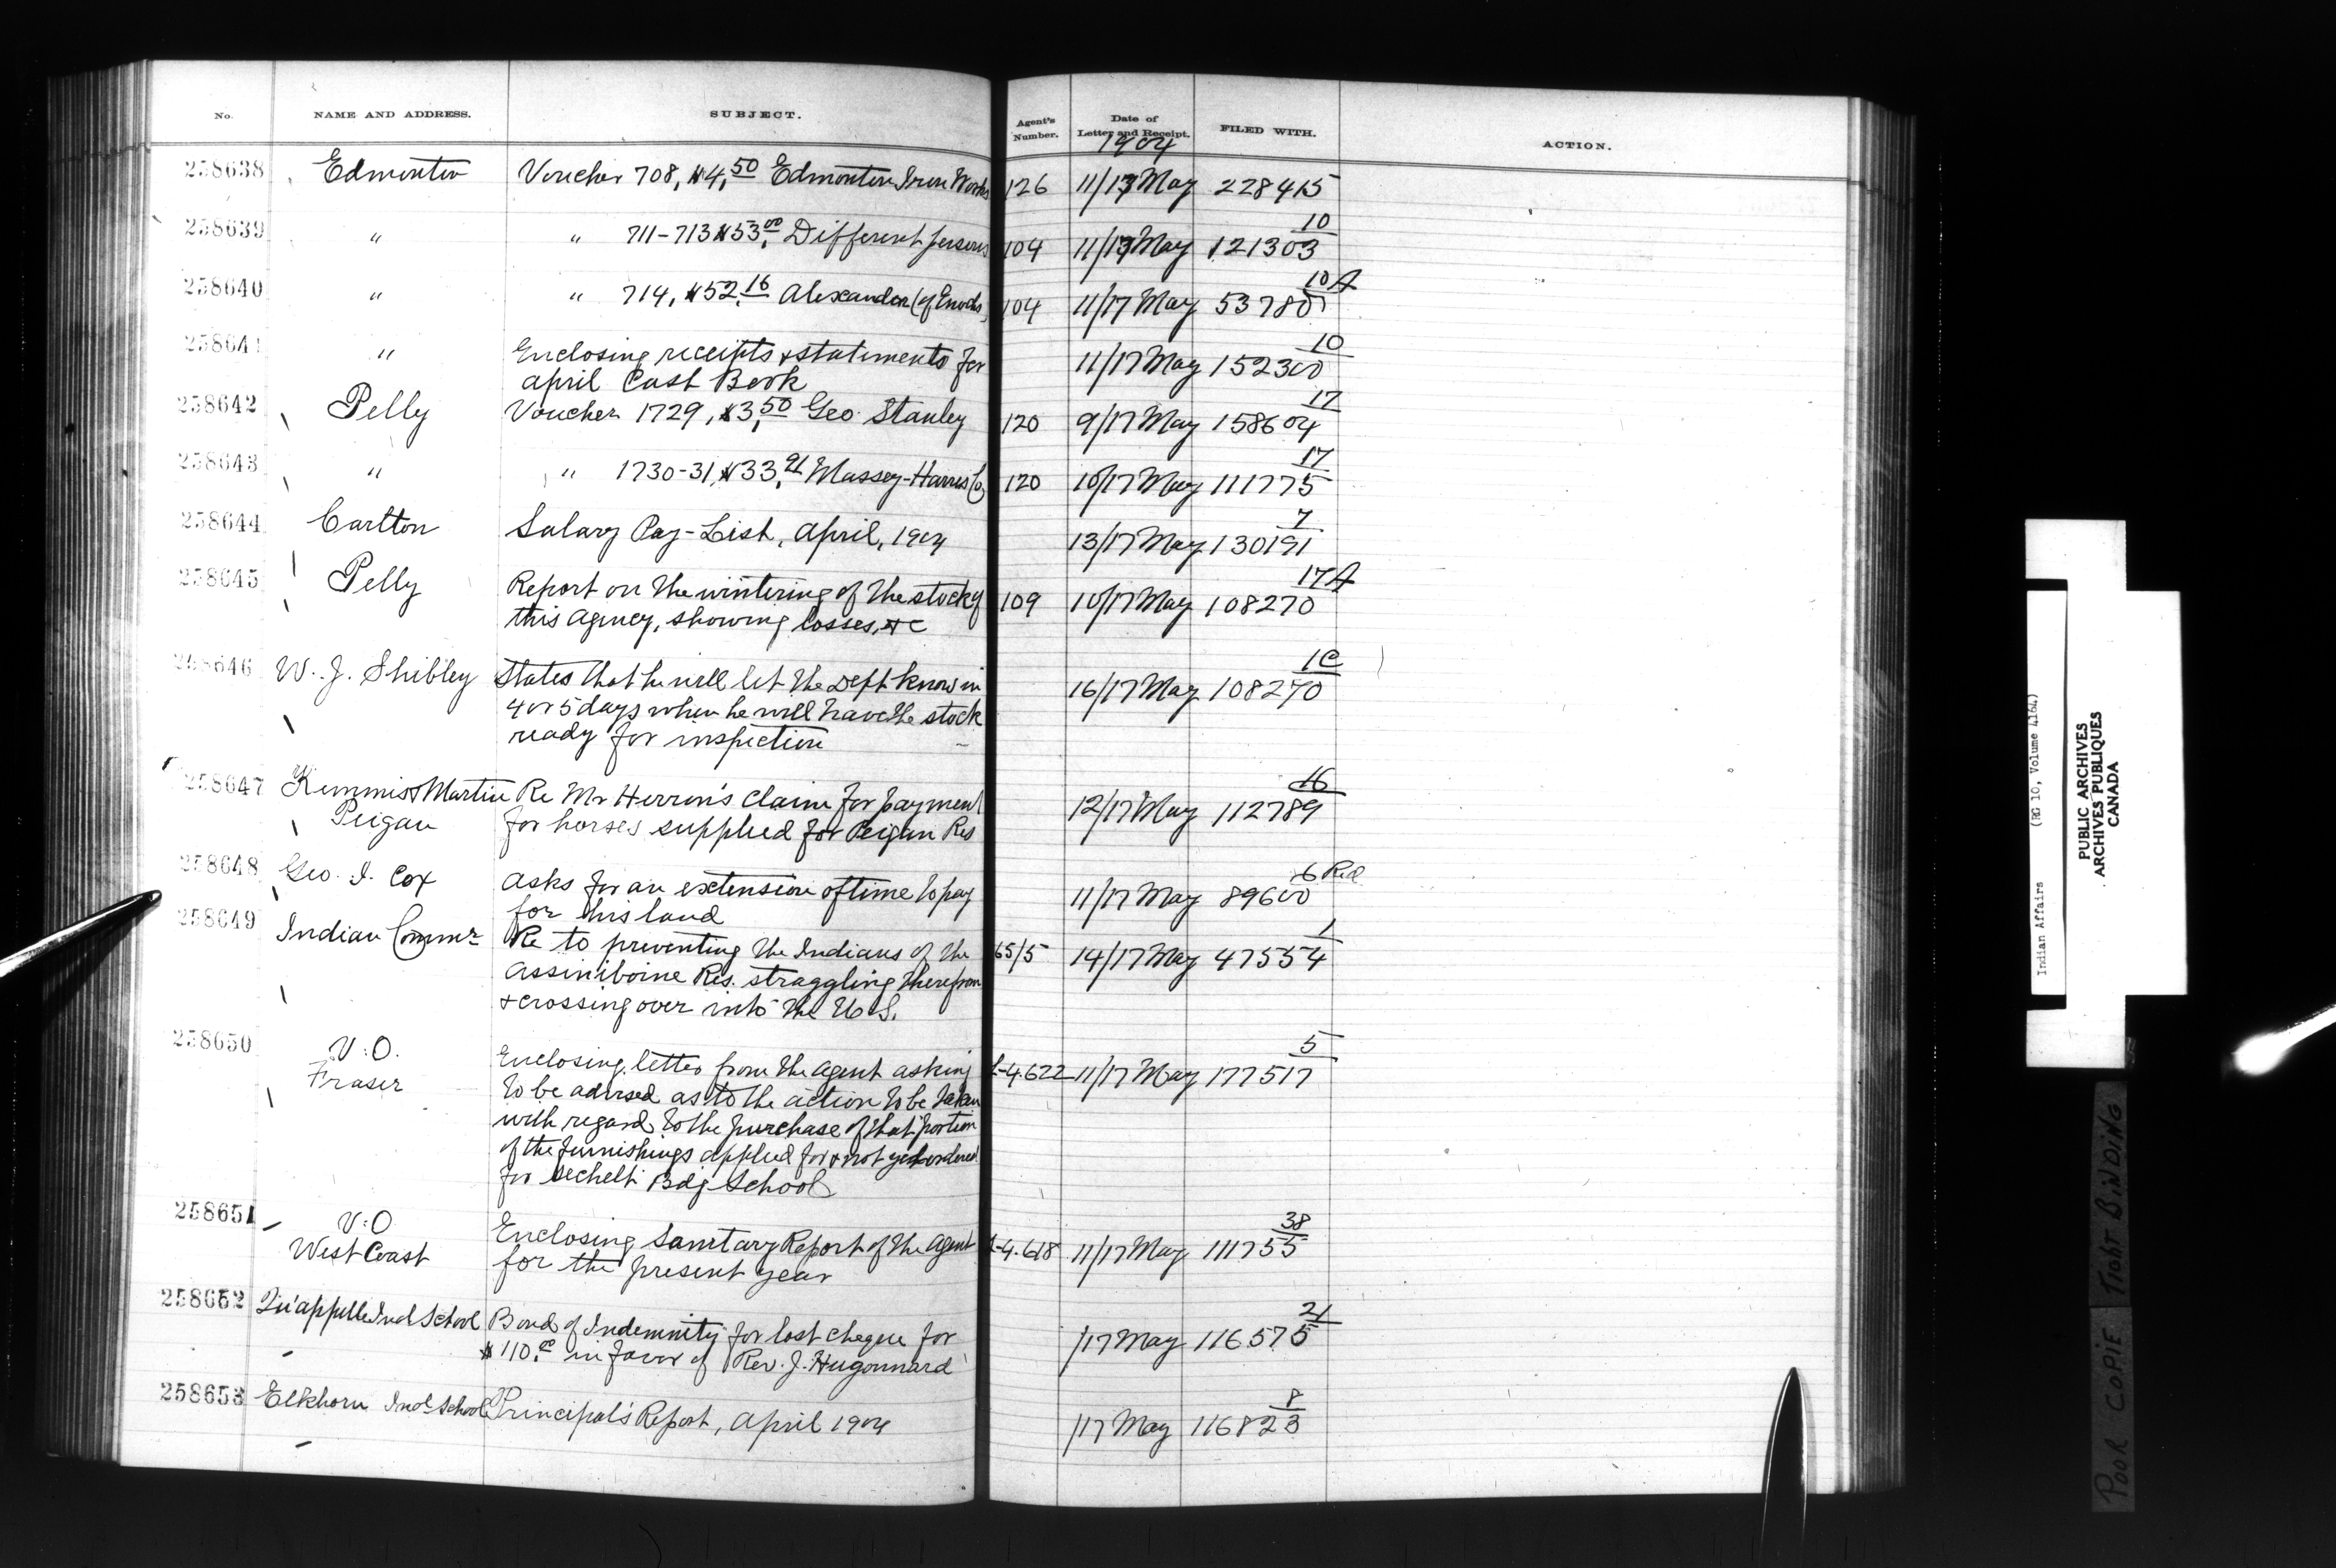 No. NAME AND ADDRESS. SUBJECT. Agent's Number. Date of Letter and Receipt. FILED WITH. ACTION.
1904
258638 Edmonton Voucher 708, $4.50 Edmonton Iron Works 126 11/17 May 228415
10
258639 " " 711-713 $53.00 Different persons 104 11/17 May 121303
10A
258640 " " 714, $52.16 Alexander (of Enochs) 104 11/17 May 53780
10
258641 " Enclosing receipts & statements for 11/17 May 152300
april Cash Book
17
258642 Pelly Voucher 1729, $3.50 Geo. Stanley 120 9/17 May 158604
17
258643 " " 1730-31, $33.91 Massey-Harris Co 120 10/17 May 111775
7
258644 Carlton Salary Pay-List, april, 1904 13/17 May 130191
17A
258645 Pelly Report on the wintering of the stock of 109 10/17 May 108270
this agency, showing losses, etc
1C
258646 W. J. Shibley States that he will let the Dept know in 16/17 May 108270
4 or 5 days when he will have the stock
ready for inspection
16
258647 Kemmis & Martin Re Mr Herron's claim for payment 12/17 May 112789
Peigan for horses supplied for Peigan Res
6 Red
258648 Geo. I. Cox asks for an extension of time to pay 11/17 May 89600
for his land
1
258649 Indian Commr Re to preventing the Indians of the 65/5 14/17 May 47554
Assiniboine Res. straggling therefrom
& crossing over into the U.S.
5
258650 V.O. Enclosing letter from the agent asking L-4.622 11/17 May 177517
Fraser to be advised as to the action to be taken
with regard to the purchase of that portion
of the furnishings applied for & not yet ordered
for Sechelt Bdg School
38
258651 V.O Enclosing Sanitary Report of the agent L-4.618 11/17 May 111755
West Coast for the present year
21
258652 Qu'appelle Ind School Bond of Indemnity for lost cheque for /17 May 116575
$110.00 in favor of Rev. J. Hugonnard
8
258653 Elkhorn Ind School Principal's Report, april 1904 /17 May 116823
Indian Affairs (RG 10, Volume 4164)
PUBLIC ARCHIVES
ARCHIVES PUBLIQUES
CANADA
POOR COPIE TIGHT BINDING